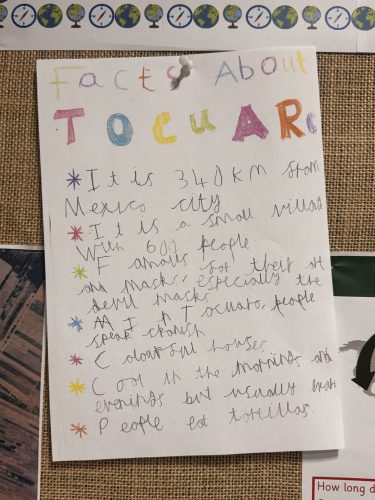 Facts About
TOCUARO
It is 340km from
Mexico city.
It is a small villag
with 600 people
Famous for their art
and masks, especially the
devil masks
In Tocuaro people
speak spanish
Colourful houses
Cool in the mornings and
evenings but usually
People eat tortillas.
How long d